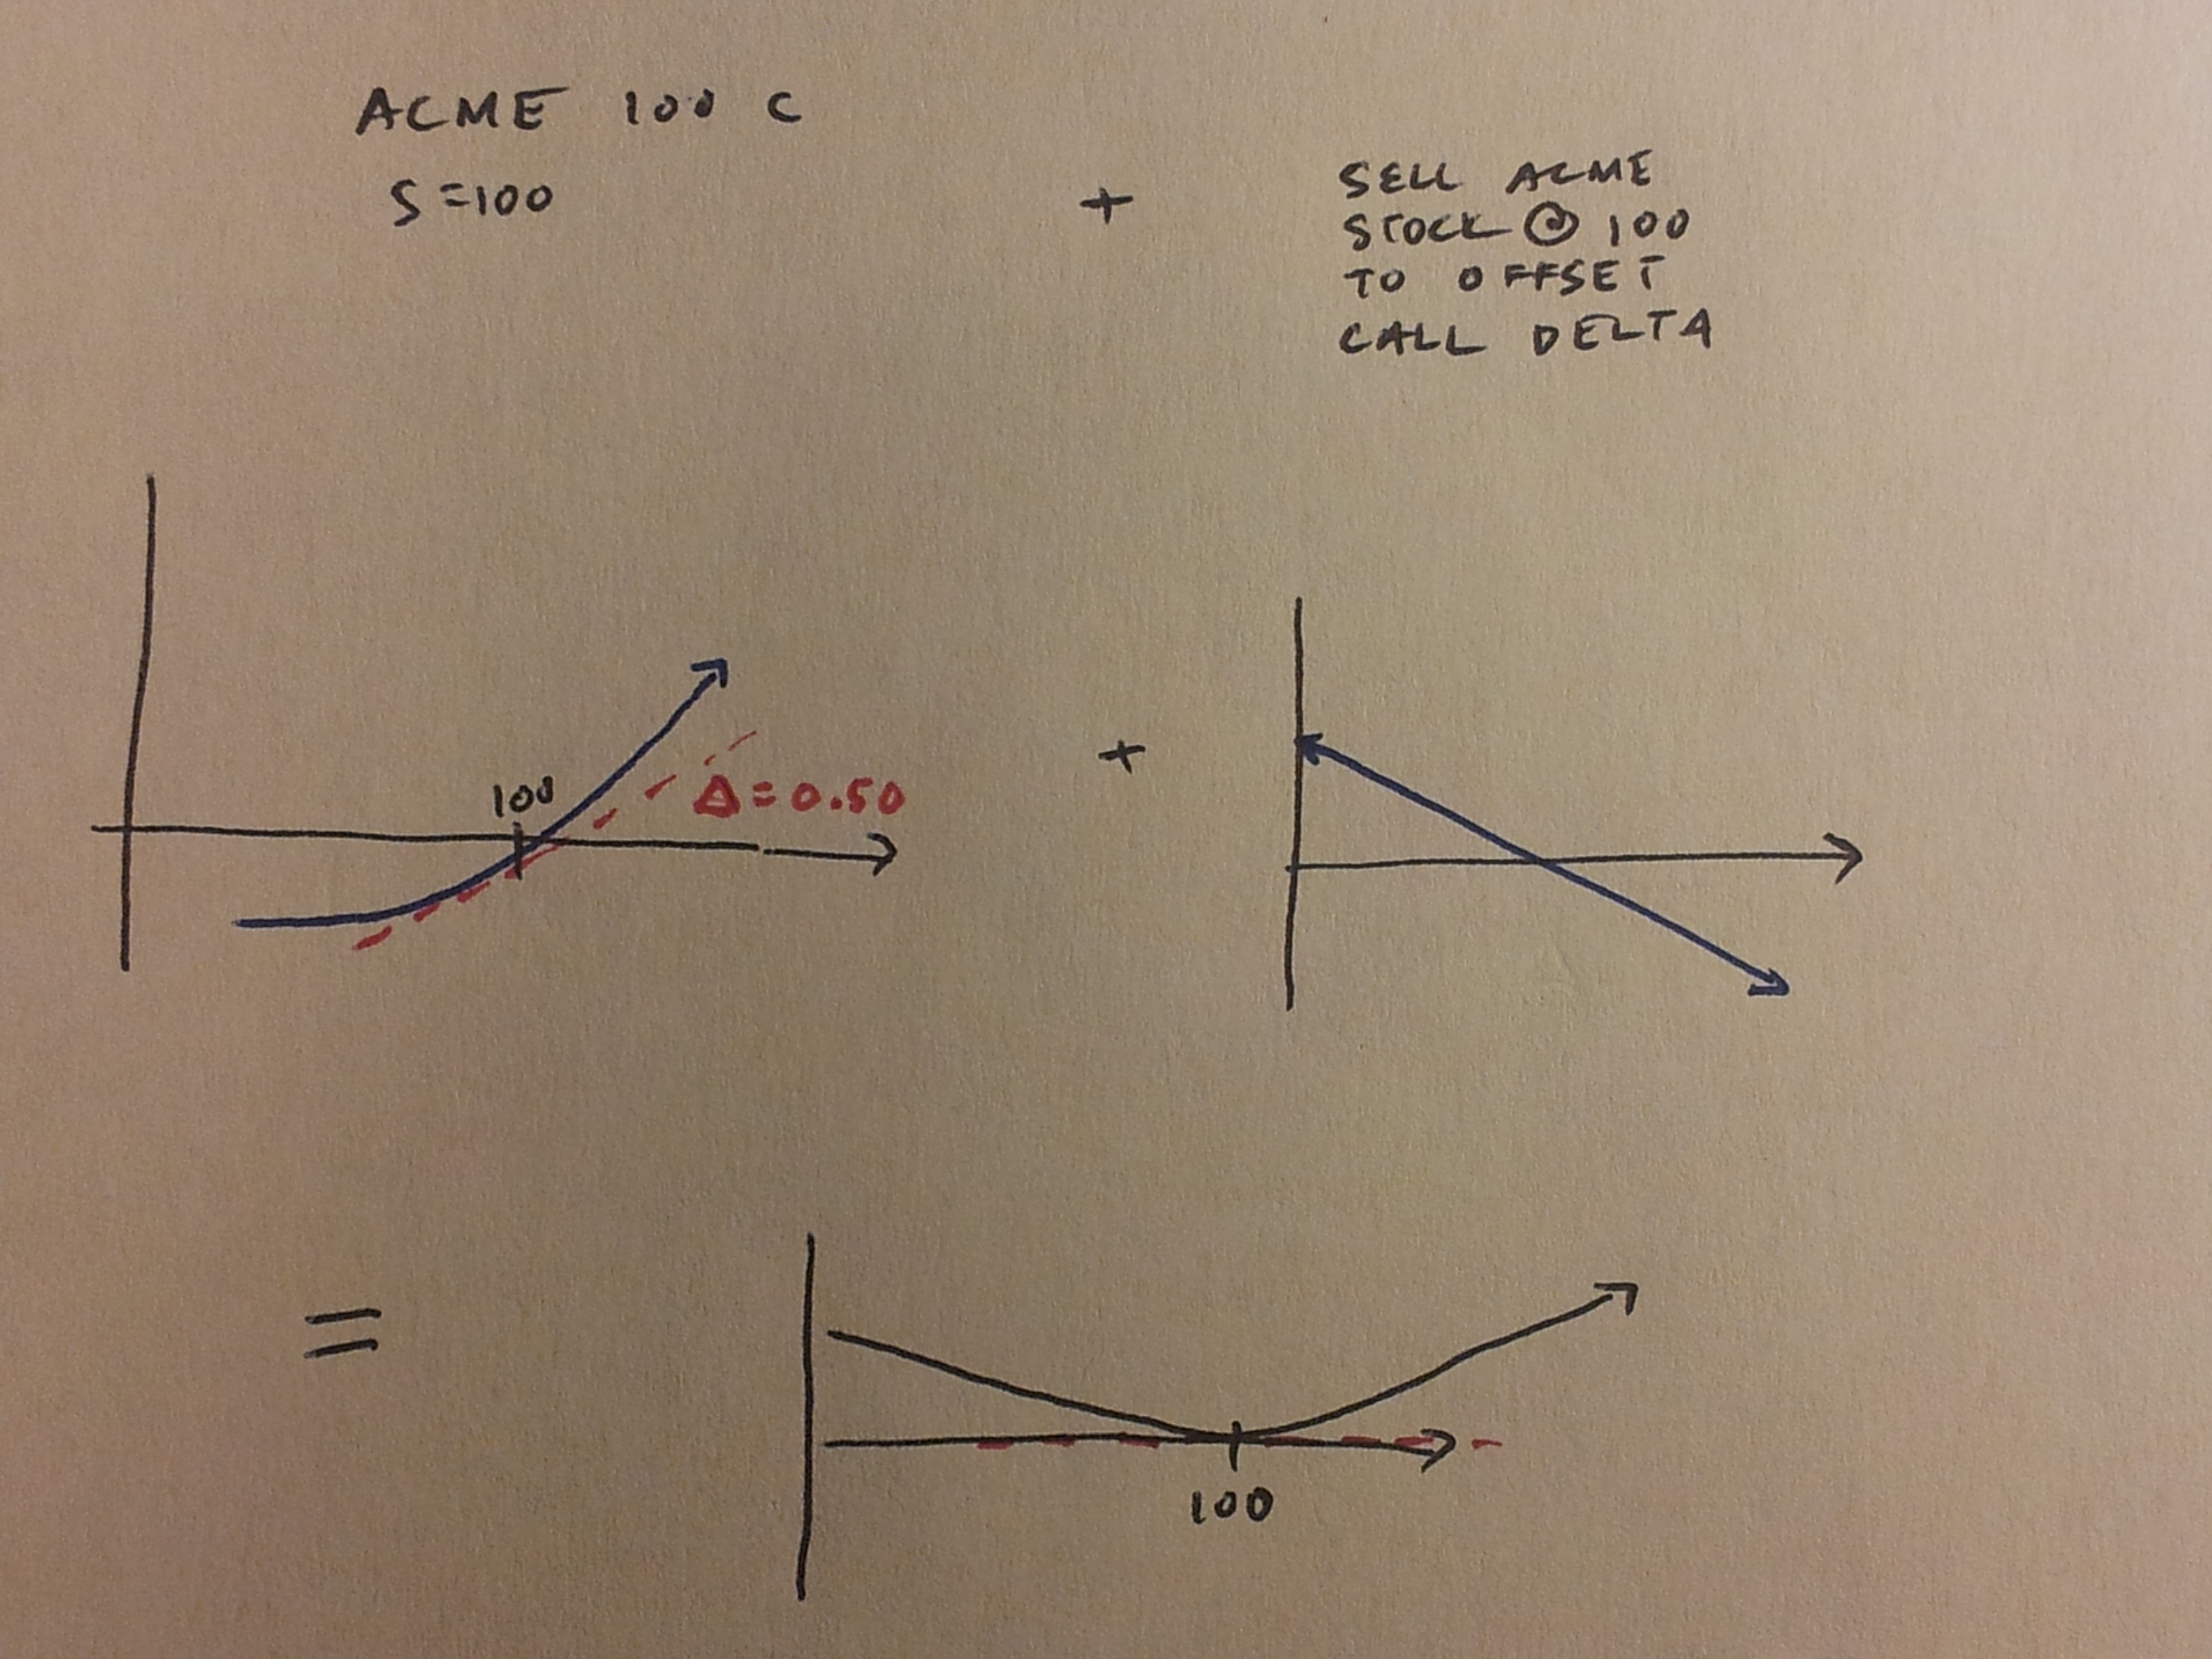 ACME 100 C
S=100
+
SELL ACME
STOCK @ 100
TO OFFSET
CALL DELTA
100
Δ=0.50
+
=
100